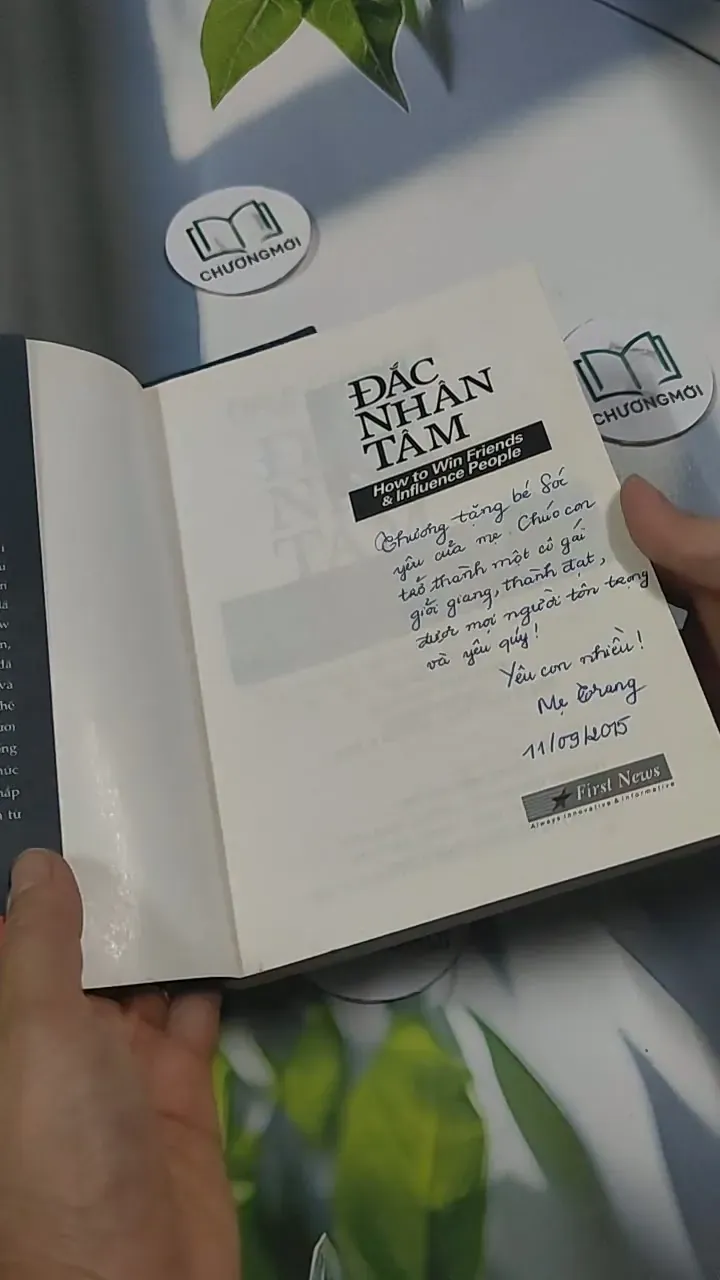 CHƯƠNGMỚI
CHƯƠNGMỚI
ĐẮC
NHÂN
TÂM
How to Win Friends
& Influence People
Chương tặng bé Sóc
yêu của mẹ. Chúc con
trở thành một cô gái
giỏi giang, thành đạt,
được mọi người tôn trọng
và yêu quý!
Yêu con nhiều!
Mẹ Trang
11/09/2015
First News
Always Innovative & Informative
và
ức
ấp
từ